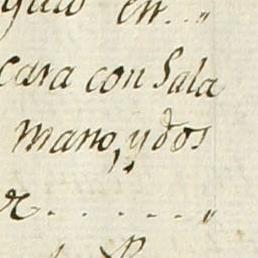 en..„
cara con Sala
mano, y dos
r......„